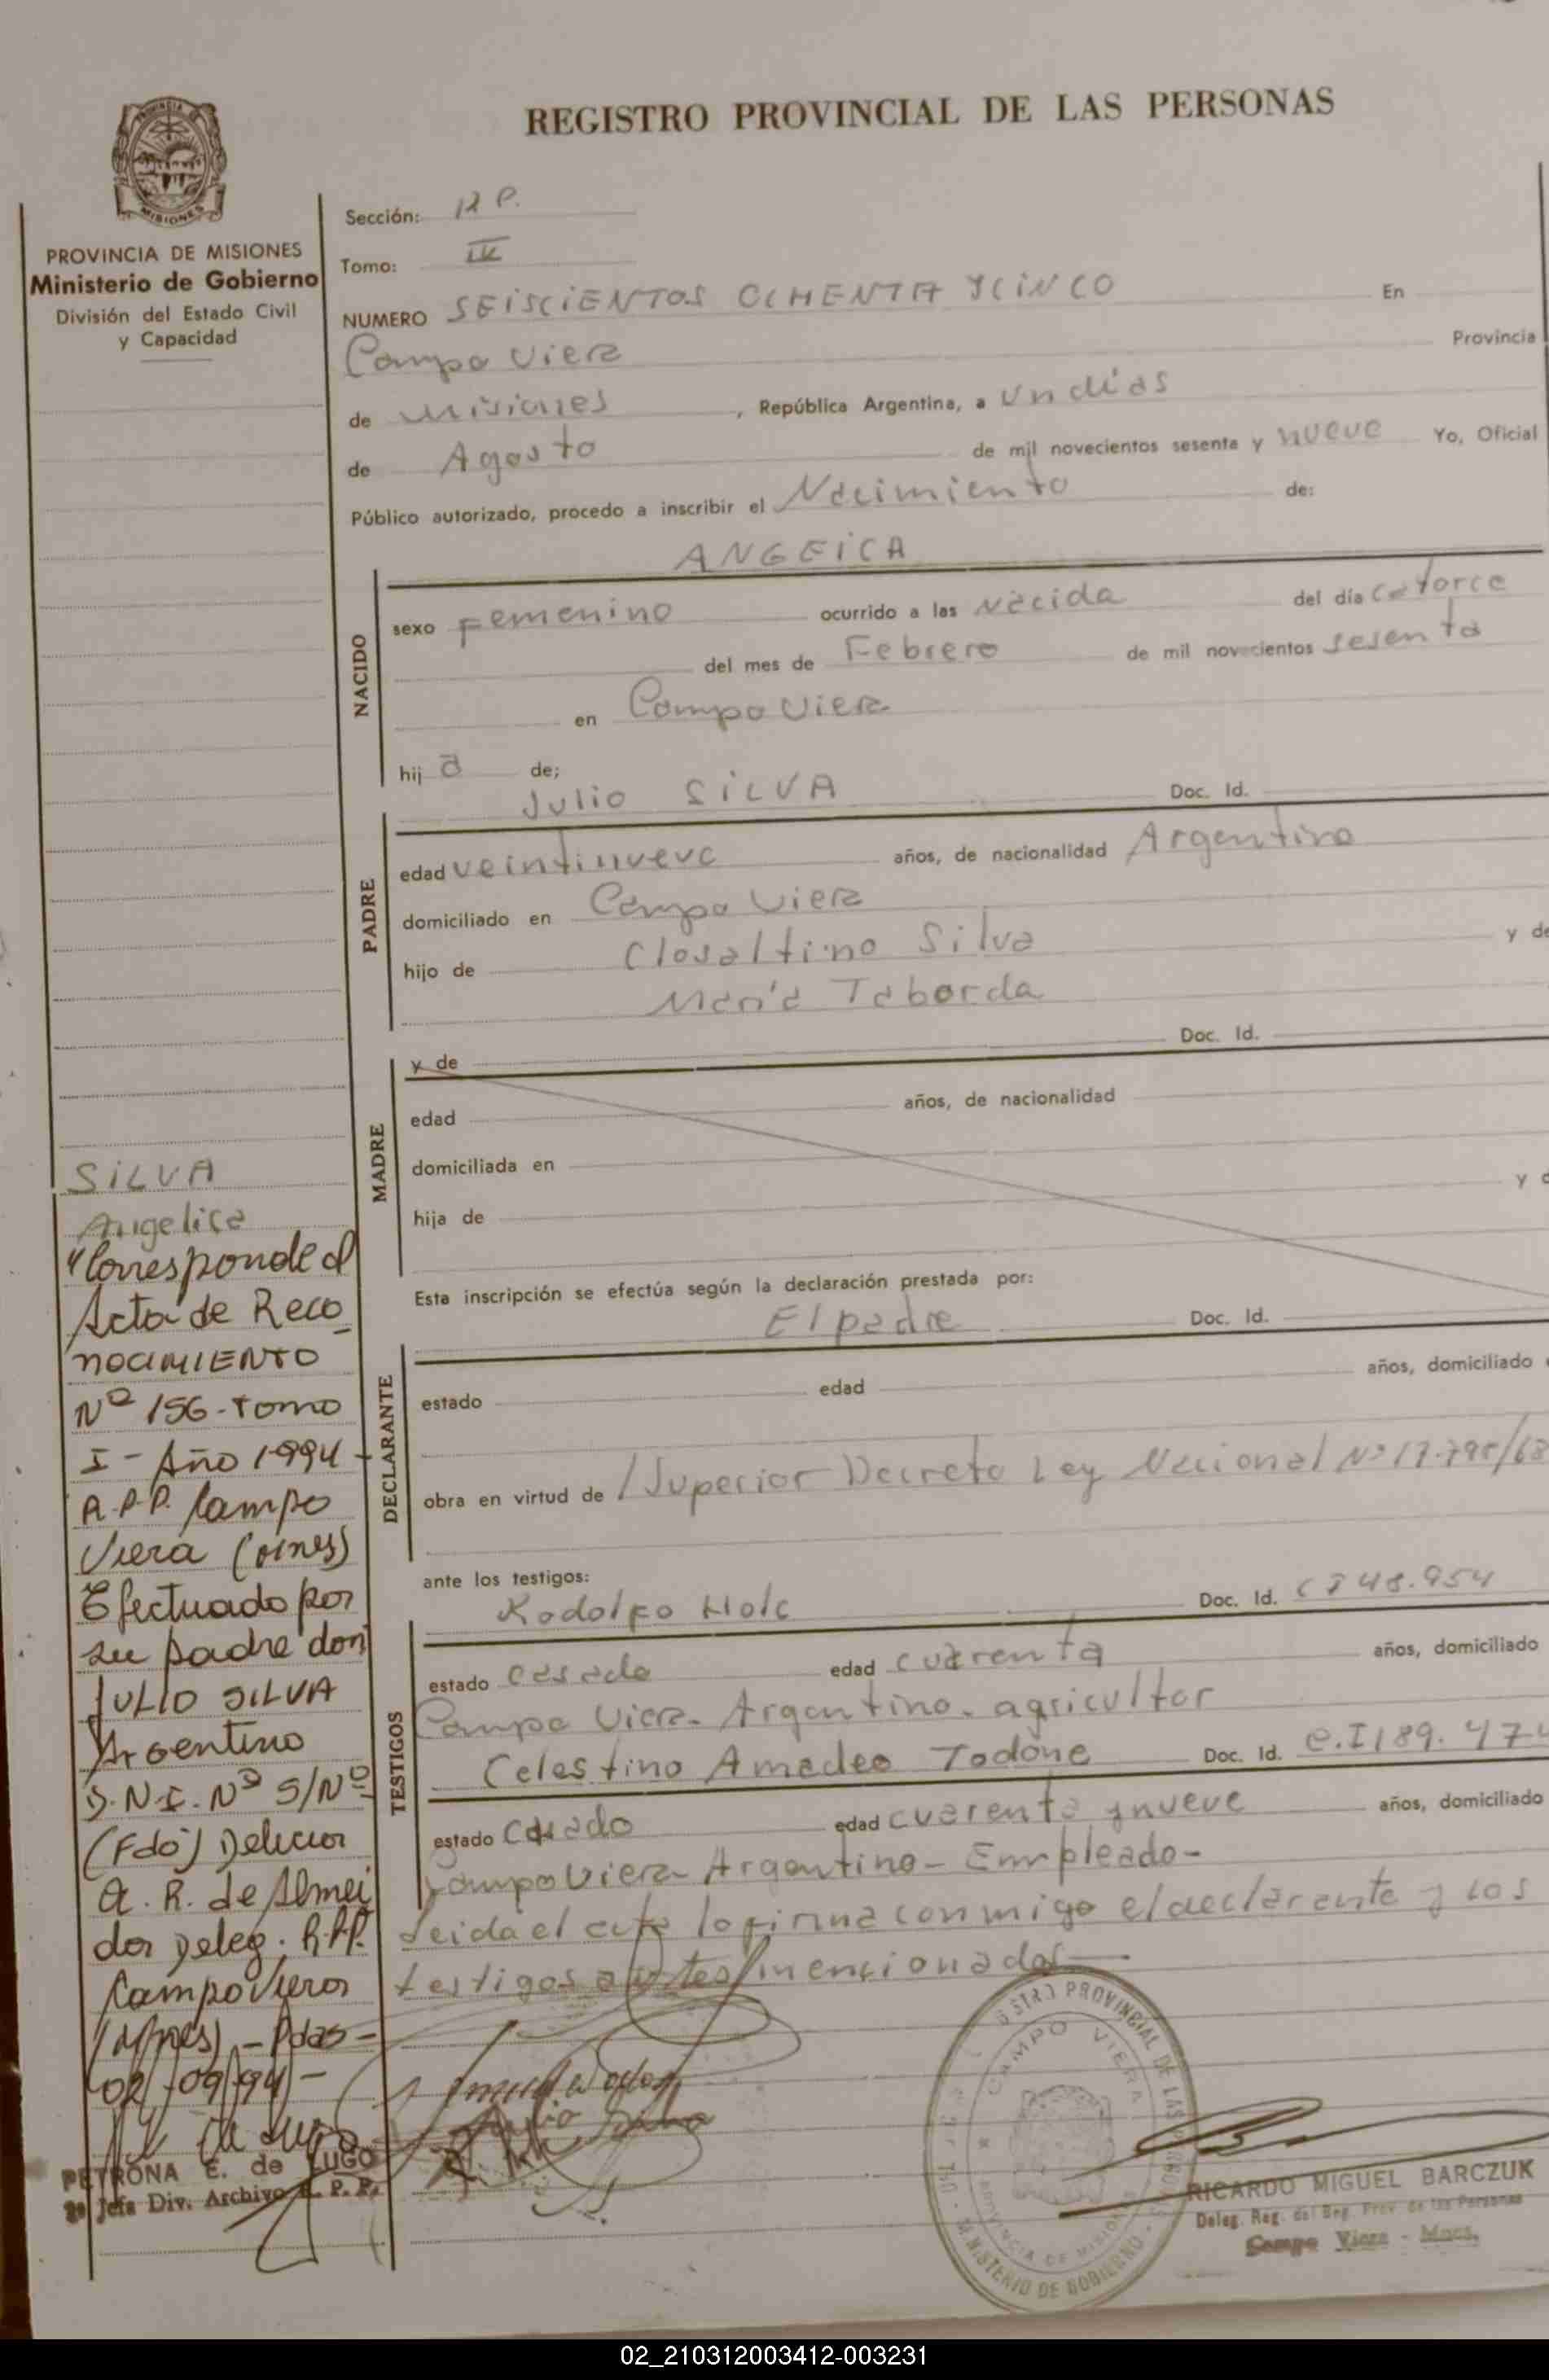 REGISTRO PROVINCIAL DE LAS PERSONAS
MISIONES
PROVINCIA DE MISIONES
Ministerio de Gobierno
División del Estado Civil
y Capacidad
Sección: R P.
Tomo: IV
NUMERO SEISCIENTOS OCHENTA Y CINCO En
Campo Viera Provincia
de Misiones , República Argentina, a Un días
de Agosto de mil novecientos sesenta y nueve Yo, Oficial
Público autorizado, procedo a inscribir el Nacimiento de:
ANGEICA
NACIDO
sexo Femenino ocurrido a las Nacida del día Catorce
del mes de Febrero de mil novecientos sesenta
en Campo Viera
hij a de;
Julio SILVA Doc. Id.
PADRE
edad veintinueve años, de nacionalidad Argentina
domiciliado en Campo Viera
hijo de Closaltino Silva y de
María Taborda
MADRE
y de Doc. Id.
edad años, de nacionalidad
domiciliada en
hija de y d
Esta inscripción se efectúa según la declaración prestada por:
El padre Doc. Id.
DECLARANTE
estado edad años, domiciliado
obra en virtud de /Superior Decreto Ley Nacional Nº 17.795/68
ante los testigos:
Rodolfo Holc Doc. Id. CI 48.954
TESTIGOS
estado Casado edad cuarenta años, domiciliado
Campo Viera. Argentino. agricultor
Celestino Amadeo Todone Doc. Id. C.I 189.474
estado Casado edad cuarenta y nueve años, domiciliado
Campo Viera Argentino- Empleado-
Leida el acta la firma conmigo el declarante y los
testigos antes mencionados
SILVA
Angelica
"Corresponde al
Acta de Reco
nocimiento
Nº 156-tomo
I - Año 1994
R.P.P. Campo
Viera (Mnes)
Efectuado por
su padre don
JULIO SILVA
Argentino
D.N.I. Nº S/Nº
(Fdo) Delicia
A. R. de Almei
da Deleg. R.P.P.
Campo Viera
(Mnes) - Pdas -
02/-09/94/-
PETRONA E. de LUGO
2º Jefa Div. Archivo R. P. P.
Julio Silva
REGISTRO PROVINCIAL DE LAS PERSONAS
CAMPO VIERA
PROVINCIA DE MISIONES
MINISTERIO DE GOBIERNO
RICARDO MIGUEL BARCZUK
Deleg. Reg. del Reg. Prov. de las Personas
Campo Viera - Mnes.
02_210312003412-003231